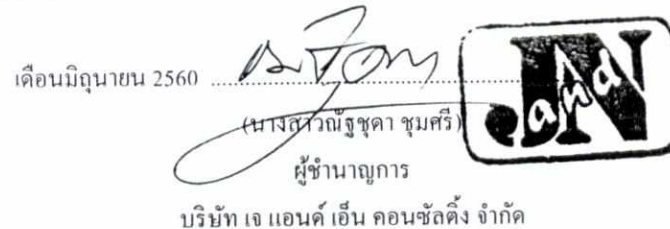 เดือนมิถุนายน 2560 ........................................
(นางสาวณัฐชุดา ชุมศรี)
J and N
ผู้ชำนาญการ
บริษัท เจ แอนด์ เอ็น คอนซัลติ้ง จำกัด